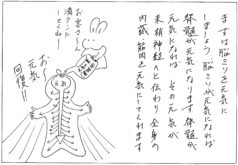 まずは脳ミソを元気に
しましょう 脳ミソが元気になれば
脊髄が元気になります 脊髄が
元気になれば その元気が
末梢神経へと伝わり全身の
内蔵、筋肉を元気にしてくれます
お〜
元気
回復!!